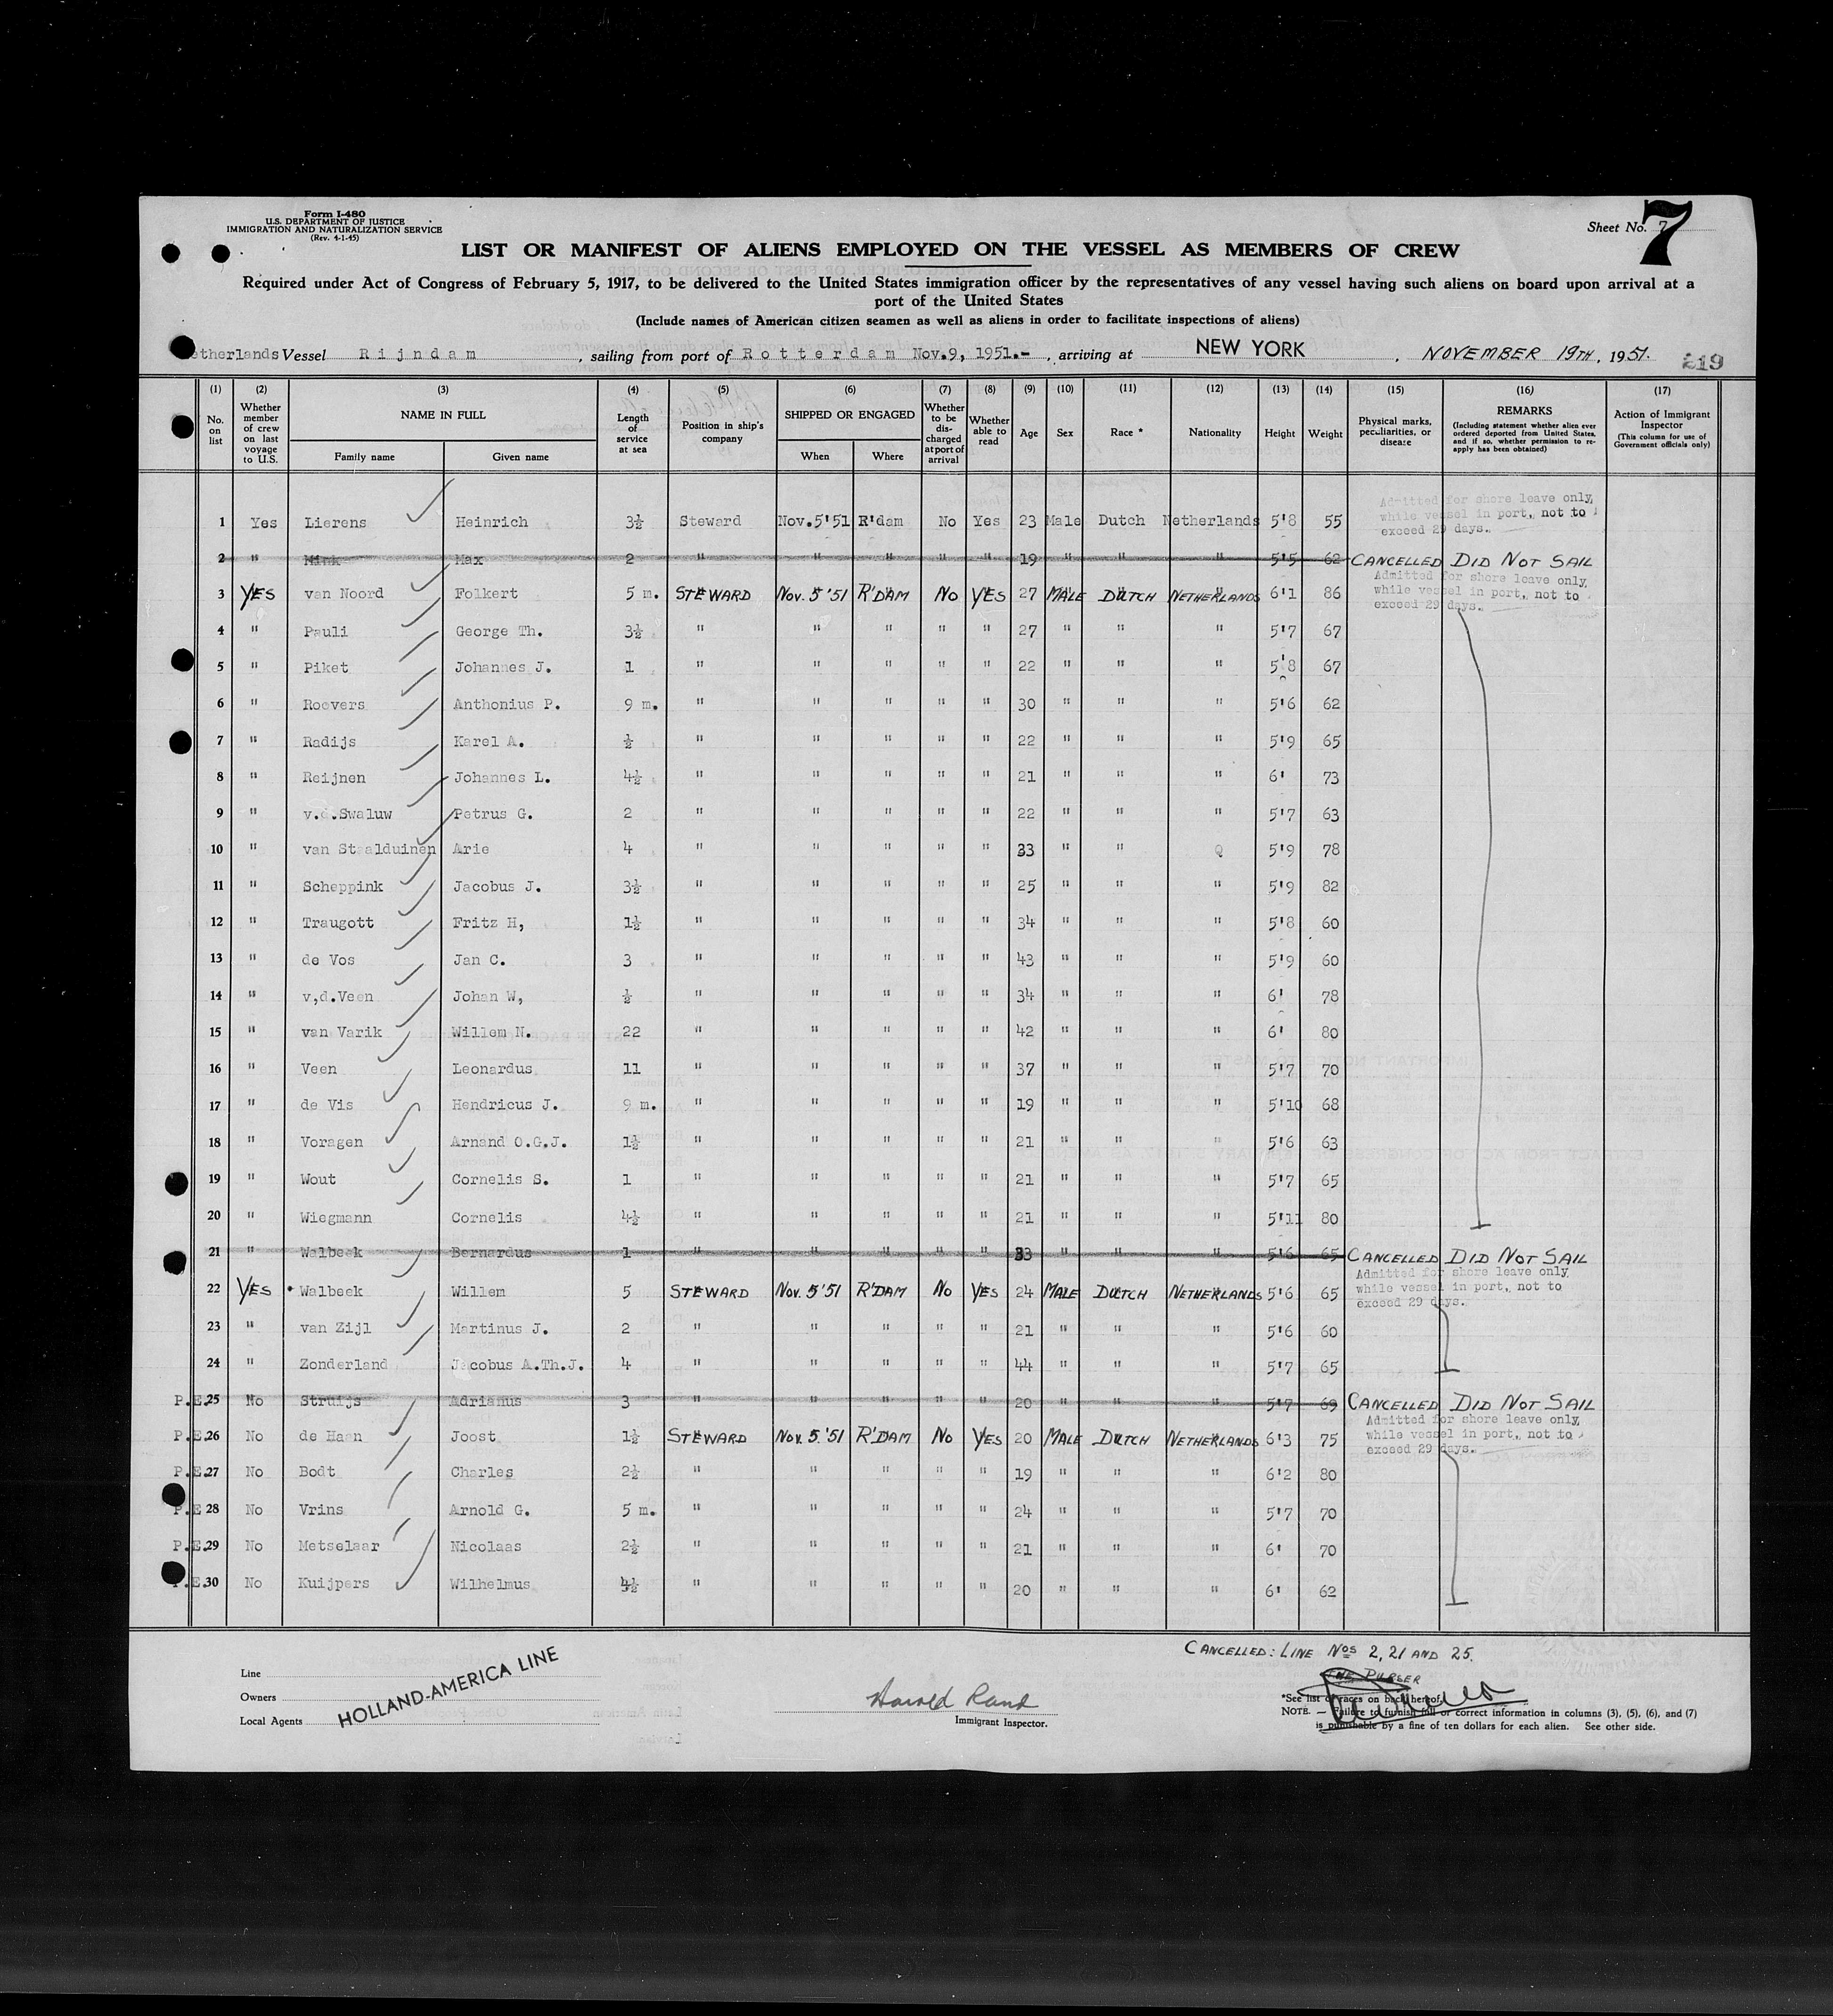 Form I-480
U.S. DEPARTMENT OF JUSTICE
IMMIGRATION AND NATURALIZATION SERVICE
(Rev. 4-1-45)
Sheet No. 7
7
LIST OR MANIFEST OF ALIENS EMPLOYED ON THE VESSEL AS MEMBERS OF CREW
Required under Act of Congress of February 5, 1917, to be delivered to the United States immigration officer by the representatives of any vessel having such aliens on board upon arrival at a
port of the United States
(Include names of American citizen seamen as well as aliens in order to facilitate inspections of aliens)
etherlands Vessel Rijndam, sailing from port of Rotterdam Nov.9, 1951.-, arriving at NEW YORK, NOVEMBER 19TH, 1951. 219
(1) (2) (3) (4) (5) (6) (7) (8) (9) (10) (11) (12) (13) (14) (15) (16) (17)
No. on list
Whether member of crew on last voyage to U.S.
NAME IN FULL
Family name Given name
Length of service at sea
Position in ship's company
SHIPPED OR ENGAGED
When Where
Whether to be discharged at port of arrival
Whether able to read
Age Sex Race * Nationality Height Weight
Physical marks, peculiarities, or disease
REMARKS
(Including statement whether alien ever ordered deported from United States, and if so, whether permission to reapply has been obtained)
Action of Immigrant Inspector
(This column for use of Government officials only)
1 Yes Lierens Heinrich 3½ Steward Nov.5'51 R'dam No Yes 23 Male Dutch Netherlands 5'8 55 Admitted for shore leave only, while vessel in port, not to exceed 29 days.
2 " Mink Max 2 " " " " " 19 " " " 5'5 62 CANCELLED DID NOT SAIL
3 YES van Noord Folkert 5 m. STEWARD Nov. 5 '51 R'DAM No YES 27 MALE DUTCH NETHERLANDS 6'1 86 Admitted for shore leave only, while vessel in port, not to exceed 29 days.
4 " Pauli George Th. 3½ " " " " " 27 " " " 5'7 67
5 " Piket Johannes J. 1 " " " " " 22 " " " 5'8 67
6 " Roovers Anthonius P. 9 m. " " " " " 30 " " " 5'6 62
7 " Radijs Karel A. ½ " " " " " 22 " " " 5'9 65
8 " Reijnen Johannes L. 4½ " " " " " 21 " " " 6' 73
9 " v.d.Swaluw Petrus G. 2 " " " " " 22 " " " 5'7 63
10 " van Staalduinen Arie 4 " " " " " 33 " " " 5'9 78
11 " Scheppink Jacobus J. 3½ " " " " " 25 " " " 5'9 82
12 " Traugott Fritz H, 1½ " " " " " 34 " " " 5'8 60
13 " de Vos Jan C. 3 " " " " " 43 " " " 5'9 60
14 " v,d.Veen Johan W, ½ " " " " " 34 " " " 6' 78
15 " van Varik Willem N. 22 " " " " " 42 " " " 6' 80
16 " Veen Leonardus 11 " " " " " 37 " " " 5'7 70
17 " de Vis Hendricus J. 9 m. " " " " " 19 " " " 5'10 68
18 " Voragen Arnand O.G.J. 1½ " " " " " 21 " " " 5'6 63
19 " Wout Cornelis S. 1 " " " " " 21 " " " 5'7 65
20 " Wiegmann Cornelis 4½ " " " " " 21 " " " 5'11 80
21 " Walbeek Bernardus 1 " " " " " 33 " " " 5'6 65 CANCELLED DID NOT SAIL
22 YES Walbeek Willem 5 STEWARD Nov. 5'51 R'DAM No YES 24 MALE DUTCH NETHERLANDS 5'6 65 Admitted for shore leave only, while vessel in port, not to exceed 29 days.
23 " van Zijl Martinus J. 2 " " " " " 21 " " " 5'6 60
24 " Zonderland Jacobus A.Th.J. 4 " " " " " 44 " " " 5'7 65
P.E. 25 No Struijs Adrianus 3 " " " " " 20 " " " 5'7 69 CANCELLED DID NOT SAIL
P.E. 26 No de Haan Joost 1½ STEWARD Nov. 5 '51 R'DAM No YES 20 MALE DUTCH NETHERLANDS 6'3 75 Admitted for shore leave only, while vessel in port, not to exceed 29 days.
P.E. 27 No Bodt Charles 2½ " " " " " 19 " " " 6'2 80
P.E. 28 No Vrins Arnold G. 5 m. " " " " " 24 " " " 5'7 70
P.E. 29 No Metselaar Nicolaas 2½ " " " " " 21 " " " 6' 70
P.E. 30 No Kuijpers Wilhelmus 4½ " " " " " 20 " " " 6' 62
CANCELLED: LINE Nos 2, 21 AND 25.
THE PURSER
Line
Owners
Local Agents
HOLLAND-AMERICA LINE
Harold Rand
Immigrant Inspector.
*See list of races on back hereof.
NOTE. — Failure to furnish full or correct information in columns (3), (5), (6), and (7)
is punishable by a fine of ten dollars for each alien. See other side.